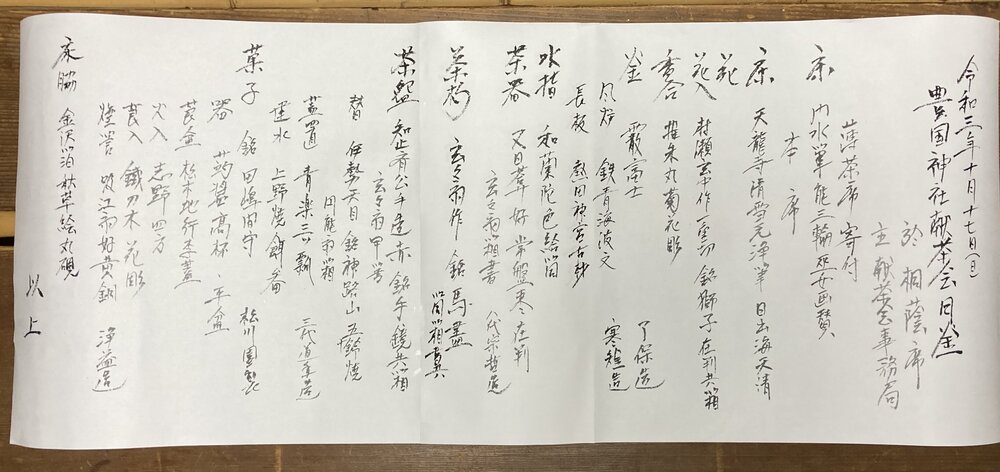 令和三年十月十七(日)
豊国神社献茶会会記
於 桐蔭席
主 献茶会事務局
薄茶席 寄付
床 即水筆 能三輪 巫女画賛
本席
床 天龍寺清雪元浄筆 日出海天清
花
花入 村瀬玄中作 一重切 銘獅子 在判共箱
香合 堆朱丸菊花彫 了保造
釜 霰富士 寒雉造
風炉 鉄青海波文
長板 熱田神宮古材
水指 和蘭陀色絵箇
茶器 又日斎好 常盤棗 在判 八代宗哲造
玄々斎箱書
茶杓 玄々斎作 銘 馬盥 箇箱書共
茶盌 知止斎公手造 赤 銘 午鏡 共箱
玄々斎甲書
替 伊勢天目 銘 神路山 五鈴焼
蓋置 青楽 三ツ瓢
円能斎箱
建水 上野焼 餌畚 三代
菓子 銘 田道間守 松川園製
器 蒟醤高杯
莨盆 杉木地行李蓋
火入 志野四方
莨入 鐵刀木 花彫
煙管 吸江斎好 黄銅 浄益造
床脇 金沢箔秋草絵丸硯
以上